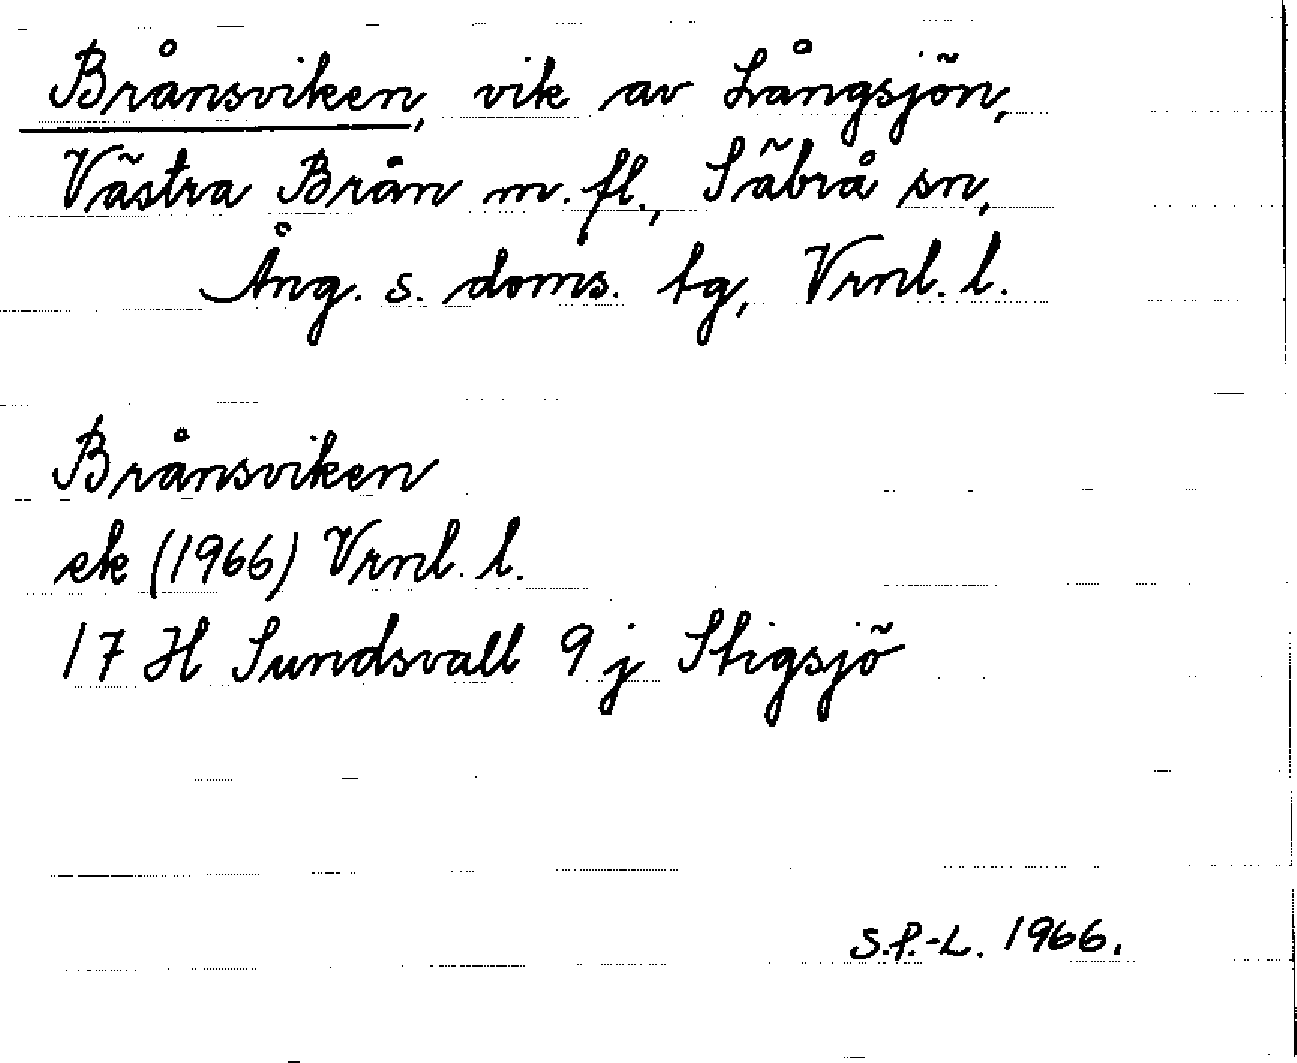 Brånsviken, vik av Långsjön,
Västra Brån m.fl., Säbrå sn,
Ång. s. doms. tg, Vrnl. l.
Brånsviken
ek (1966) Vrnl. l.
17 H Sundsvall 9 j Stigsjö
S.P.-L. 1966.